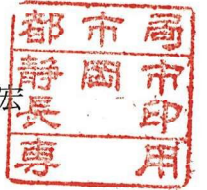 宏
都市局
静岡市
長印
専用